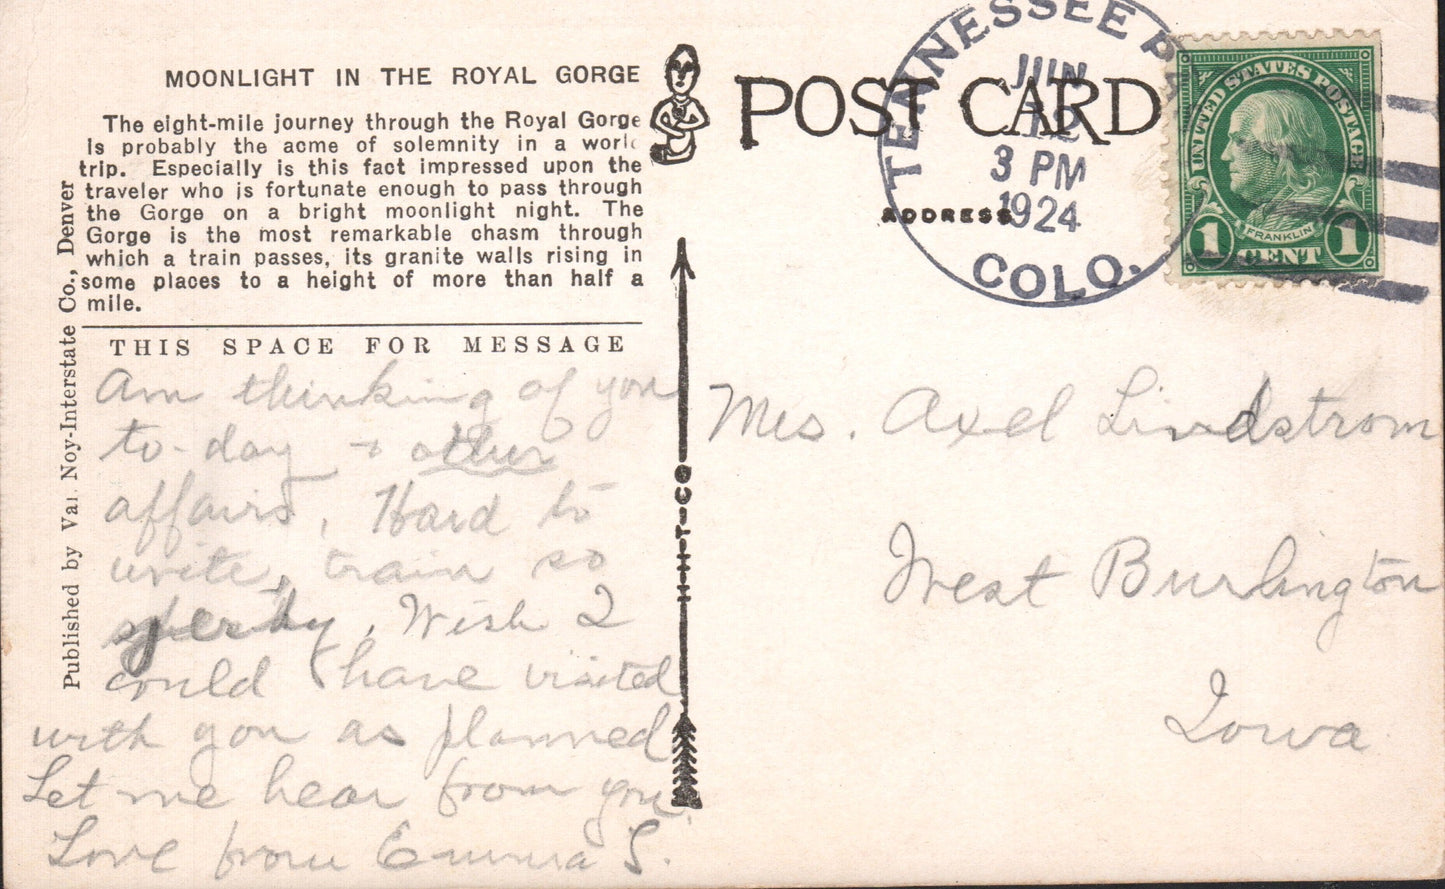 MOONLIGHT IN THE ROYAL GORGE
The eight-mile journey through the Royal Gorge
is probably the acme of solemnity in a world
trip. Especially is this fact impressed upon the
traveler who is fortunate enough to pass through
the Gorge on a bright moonlight night. The
Gorge is the most remarkable chasm through
which a train passes, its granite walls rising in
some places to a height of more than half a
mile.
THIS SPACE FOR MESSAGE
Am thinking of you
to-day + other
affairs, Hard to
write, train so
, Wish I
could have visited
with you as planned
Let me hear from you.
Love from Emma S.
Published by Val. Noy-Interstate Co., Denver
H-H-T-CO
POST CARD
ADDRESS
TENNESSEE PA
JUN
12
3 PM
1924
COLO.
UNITED STATES POSTAGE
FRANKLIN
1 CENT 1
Mrs. Axel Lindstrom
West Burlington
Iowa